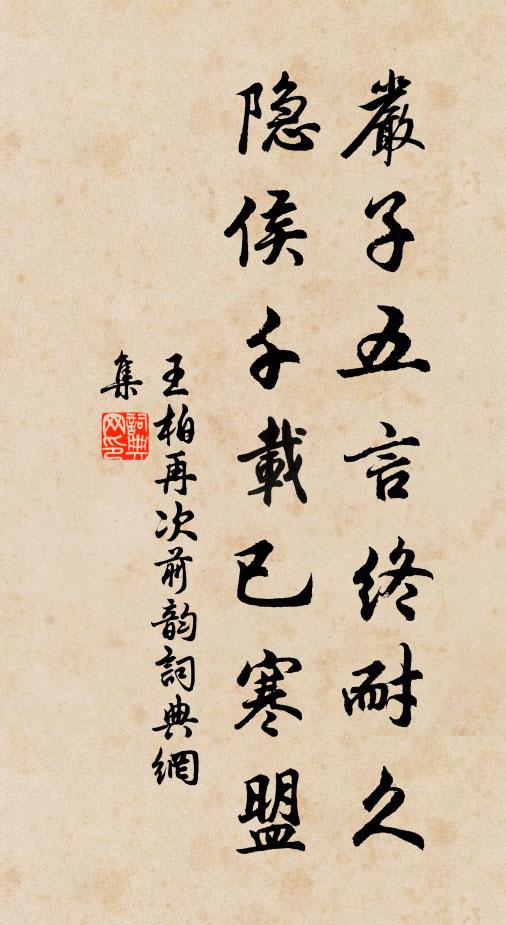 嚴子五言終耐久
隐侯千載已寒盟
王柏再次前韵詞典網
集
詞典
网印